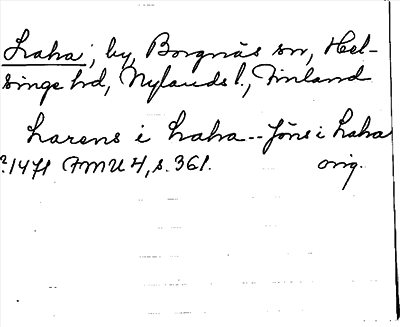 Laha, by, Borgnäs sn, Hel-
singe hd, Nylands l., Finland
Larens i Laha -- Jöns i Laha
?.1471 FMU 4, s. 361. orig.